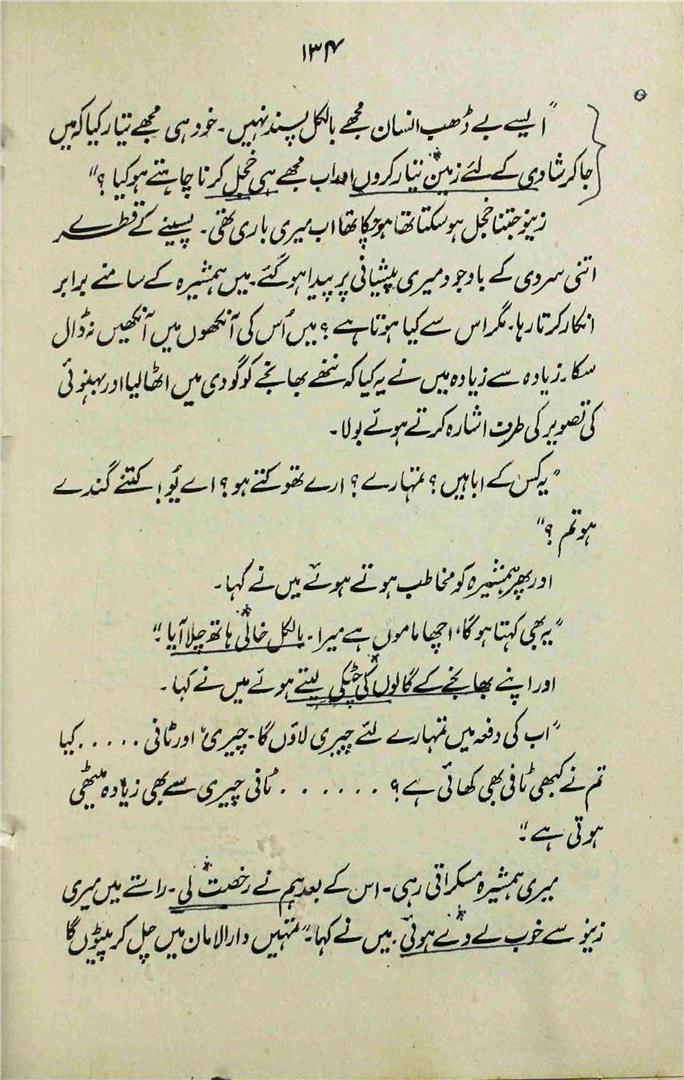 ۱۳۴
"ایسے بے ڈھب انسان مجھے بالکل پسند نہیں۔ خود ہی مجھے تیار کیا کہ میں
جا کر شادی کے لئے زمین تیار کروں اور اب مجھے ہی خجل کرنا چاہتے ہو کیا ؟"
زینو جتنا خجل ہو سکتا تھا ہو چکا تھا اب میری باری تھی۔ پسینے کے قطرے
اتنی سردی کے باوجود میری پیشانی پر پیدا ہو گئے۔ میں ہمشیرہ کے سامنے برابر
انکار کرتا رہا۔ مگر اس سے کیا ہوتا ہے ؟ میں اُس کی آنکھوں میں آنکھیں نہ ڈال
سکا۔ زیادہ سے زیادہ میں نے یہ کیا کہ ننھے بھانجے کو گودی میں اٹھا لیا اور بہنوئی
کی تصویر کی طرف اشارہ کرتے ہوئے بولا۔
"یہ کس کے ابا ہیں ؟ تمہارے ؟ ارے تھوکتے ہو ؟ اے یُو! کتنے گندے
ہو تم ؟"
اور پھر ہمشیرہ کو مخاطب ہوتے ہوئے میں نے کہا۔
"یہ بھی کہتا ہوگا، اچھا ماموں ہے میرا۔ بالکل خالی ہاتھ چلا آیا۔"
اور اپنے بھانجے کے گالوں کی چٹکی لیتے ہوئے میں نے کہا۔
"اب کی دفعہ میں تمہارے لئے چیری لاؤں گا۔ چیری اور ٹافی ..... کیا
تم نے کبھی ٹافی بھی کھائی ہے ؟ ...... ٹافی چیری سے بھی زیادہ میٹھی
ہوتی ہے۔"
میری ہمشیرہ مسکراتی رہی۔ اس کے بعد ہم نے رخصت لی۔ راستے میں میری
زینو سے خوب لے دے ہوئی۔ میں نے کہا۔ "تمہیں دارالامان میں چل کر پیٹوں گا